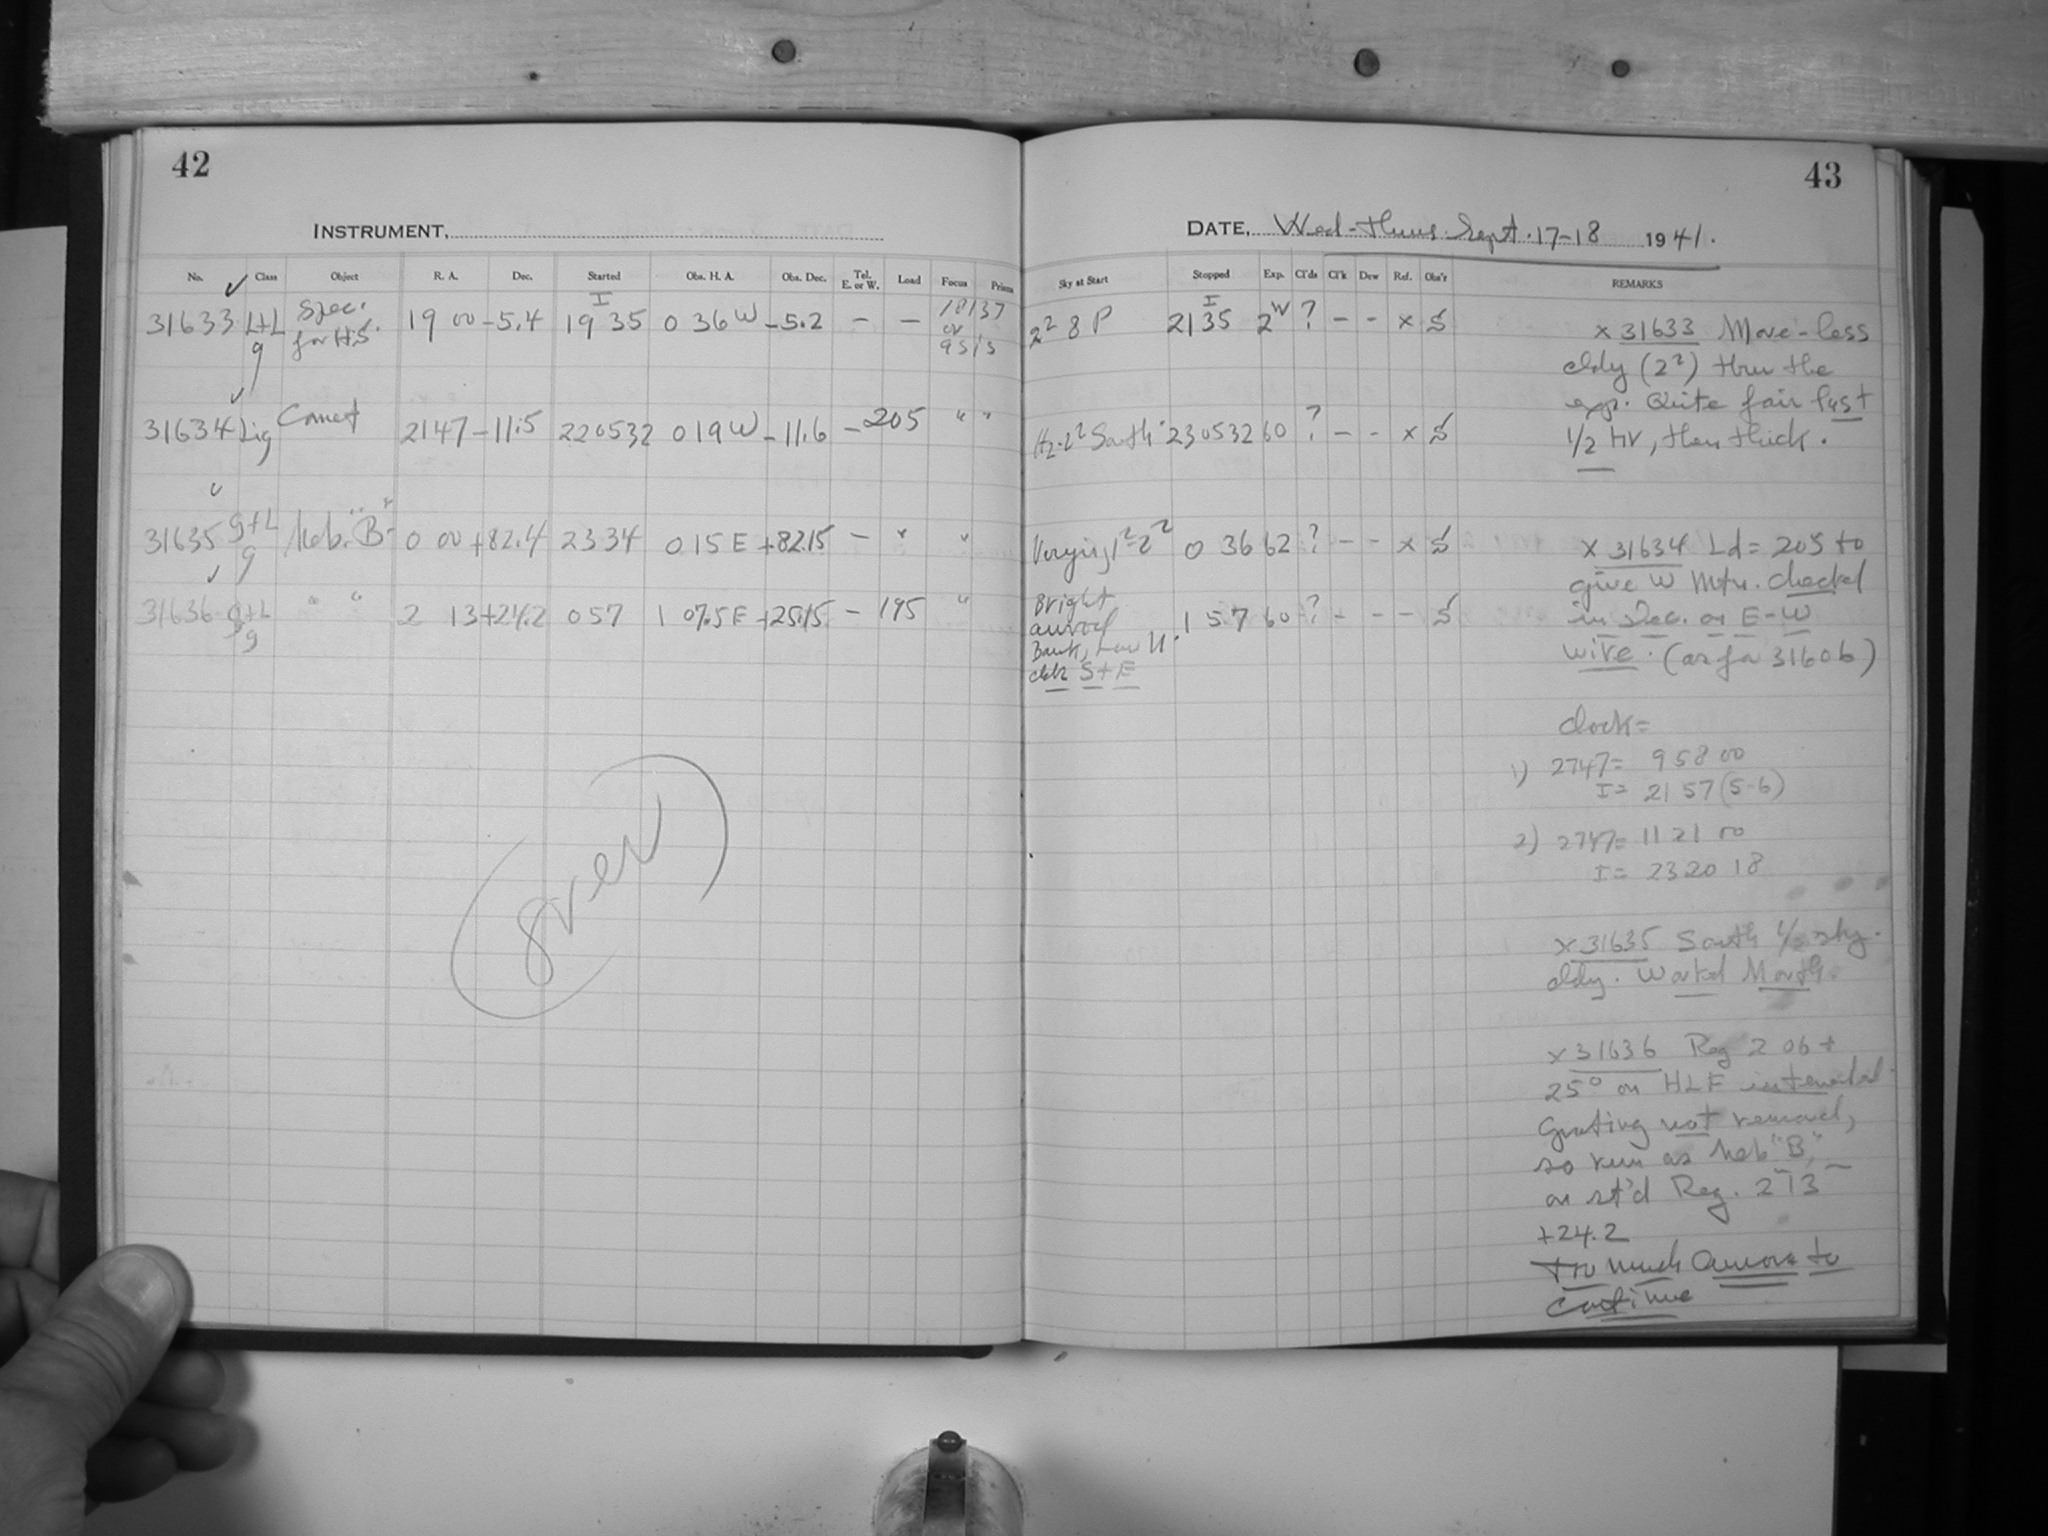 42
INSTRUMENT,
No. Class Object R. A. Dec. Started Obs. H. A. Obs. Dec. Tel. E. or W. Load Focus Prism
31633 L+L g Spec. for H.S. 19 00 -5.4 I 19 35 0 36 W -5.2 - - 18137 or 9515
31634 Lig Comet 21 47 -11.5 220532 0 19 W -11.6 - 205 " "
31635 g+L g Neb. "B" 0 00 +82.4 23 34 0 15 E +82.15 - " "
31636 g+L g " " 2 13 +24.2 0 57 1 07.5 E +25.15 - 195 "
(over)
43
DATE, Wed-Thurs. Sept. 17-18 1941.
Sky at Start Stopped Exp. Cl'ds Cl'k Dew Ref. Obs'r REMARKS
2² 8 P I 21 35 2W ? - - x S
H2-2² South 230532 60 ? - - x S
Varying 1²-2² 0 36 62 ? - - x S
Bright auroral Bank, Low N. clds S+E 1 57 60 ? - - - S
x 31633 More-less
cldy (2²) thru the
exp. Quite fair last
1/2 hr, then thick.
x 31634 Ld = 205 to
give W Mtn. checked
in Dec. on E-W
wire. (as for 31606)
Clock=
1) 2747= 9 58 00
I= 21 57 (5-6)
2) 2747= 11 21 00
I= 23 20 18
x 31635 South 1/2 sky
cldy. Worked North.
x 31636 Reg 2 06 +
25° on HLE intended.
Grating not removed,
so run as Neb "B,"
on st'd Reg. 2 13
+24.2
Too much Aurora to
continue